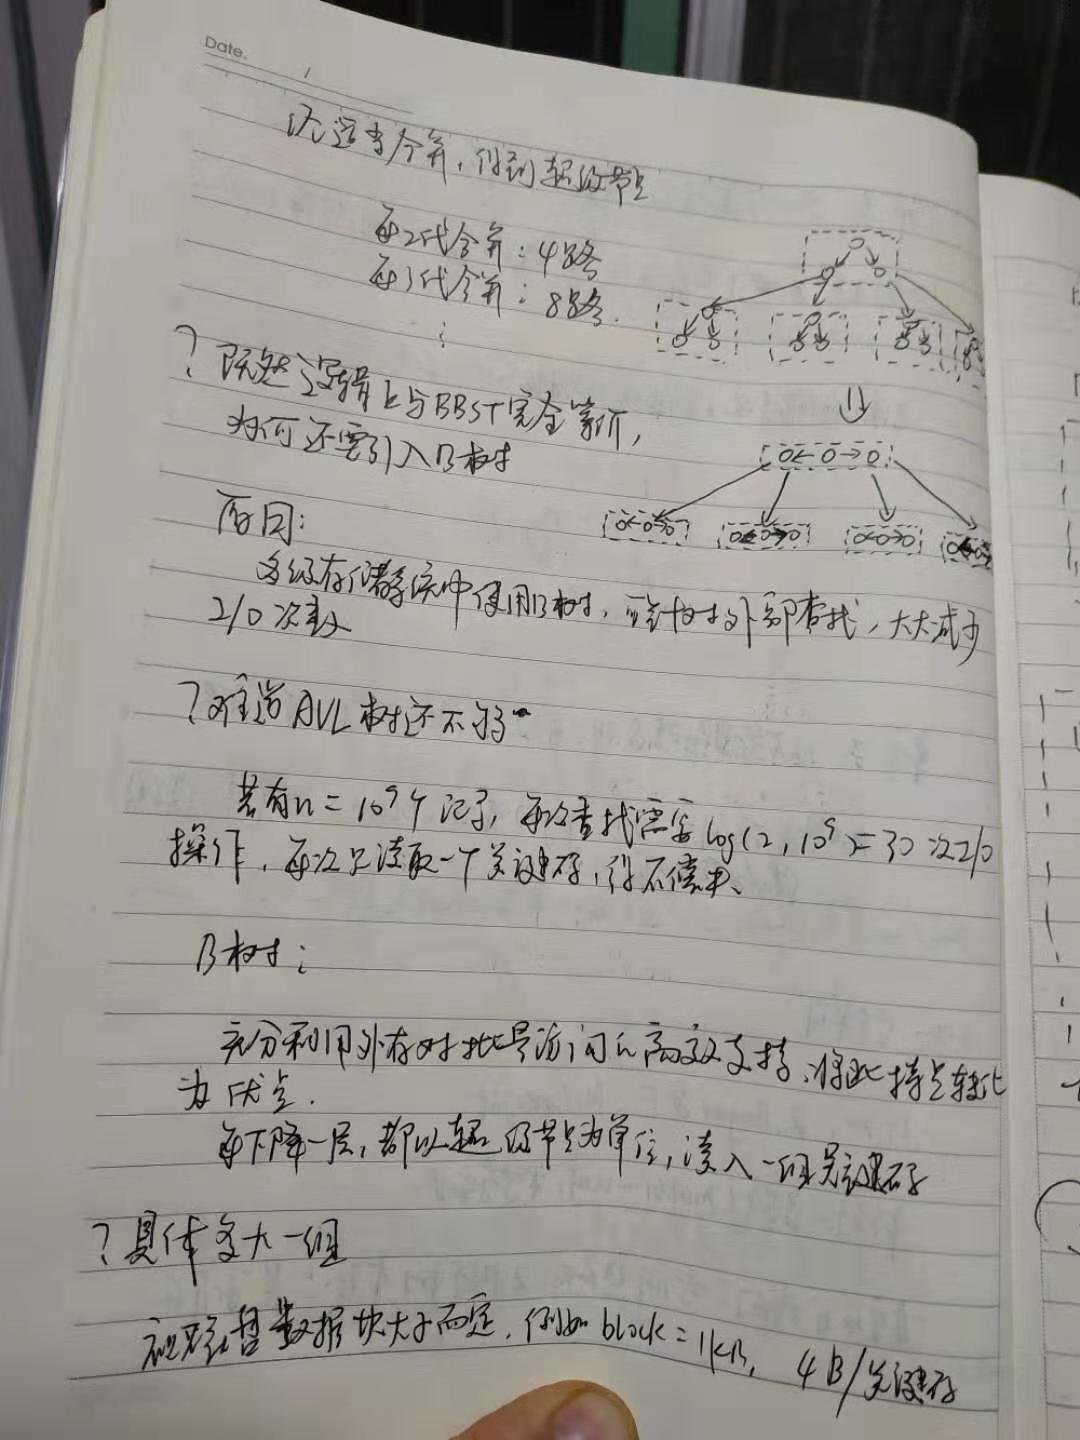 Date.
经适当合并，得到超级节点
每2代合并：4路
每3代合并：8路.
? 既然逻辑上与BBST完全等价，
为何还要引入B树
原因：
多级存储系统中使用B树，可针对外部查找，大大减少
I/O次数
? 难道AVL树还不够
若有n=10^9个记录，每次查找需要log(2,10^9)=30次I/O
操作，每次只读取一个关键码，得不偿失、
B树：
充分利用外存对批量访问的高效支持、将此特点转化
为优点.
每下降一层，都以超级节点为单位，读入一组关键码
? 具体多大一组
视磁盘数据块大小而定，例如block=1KB，4B/关键码